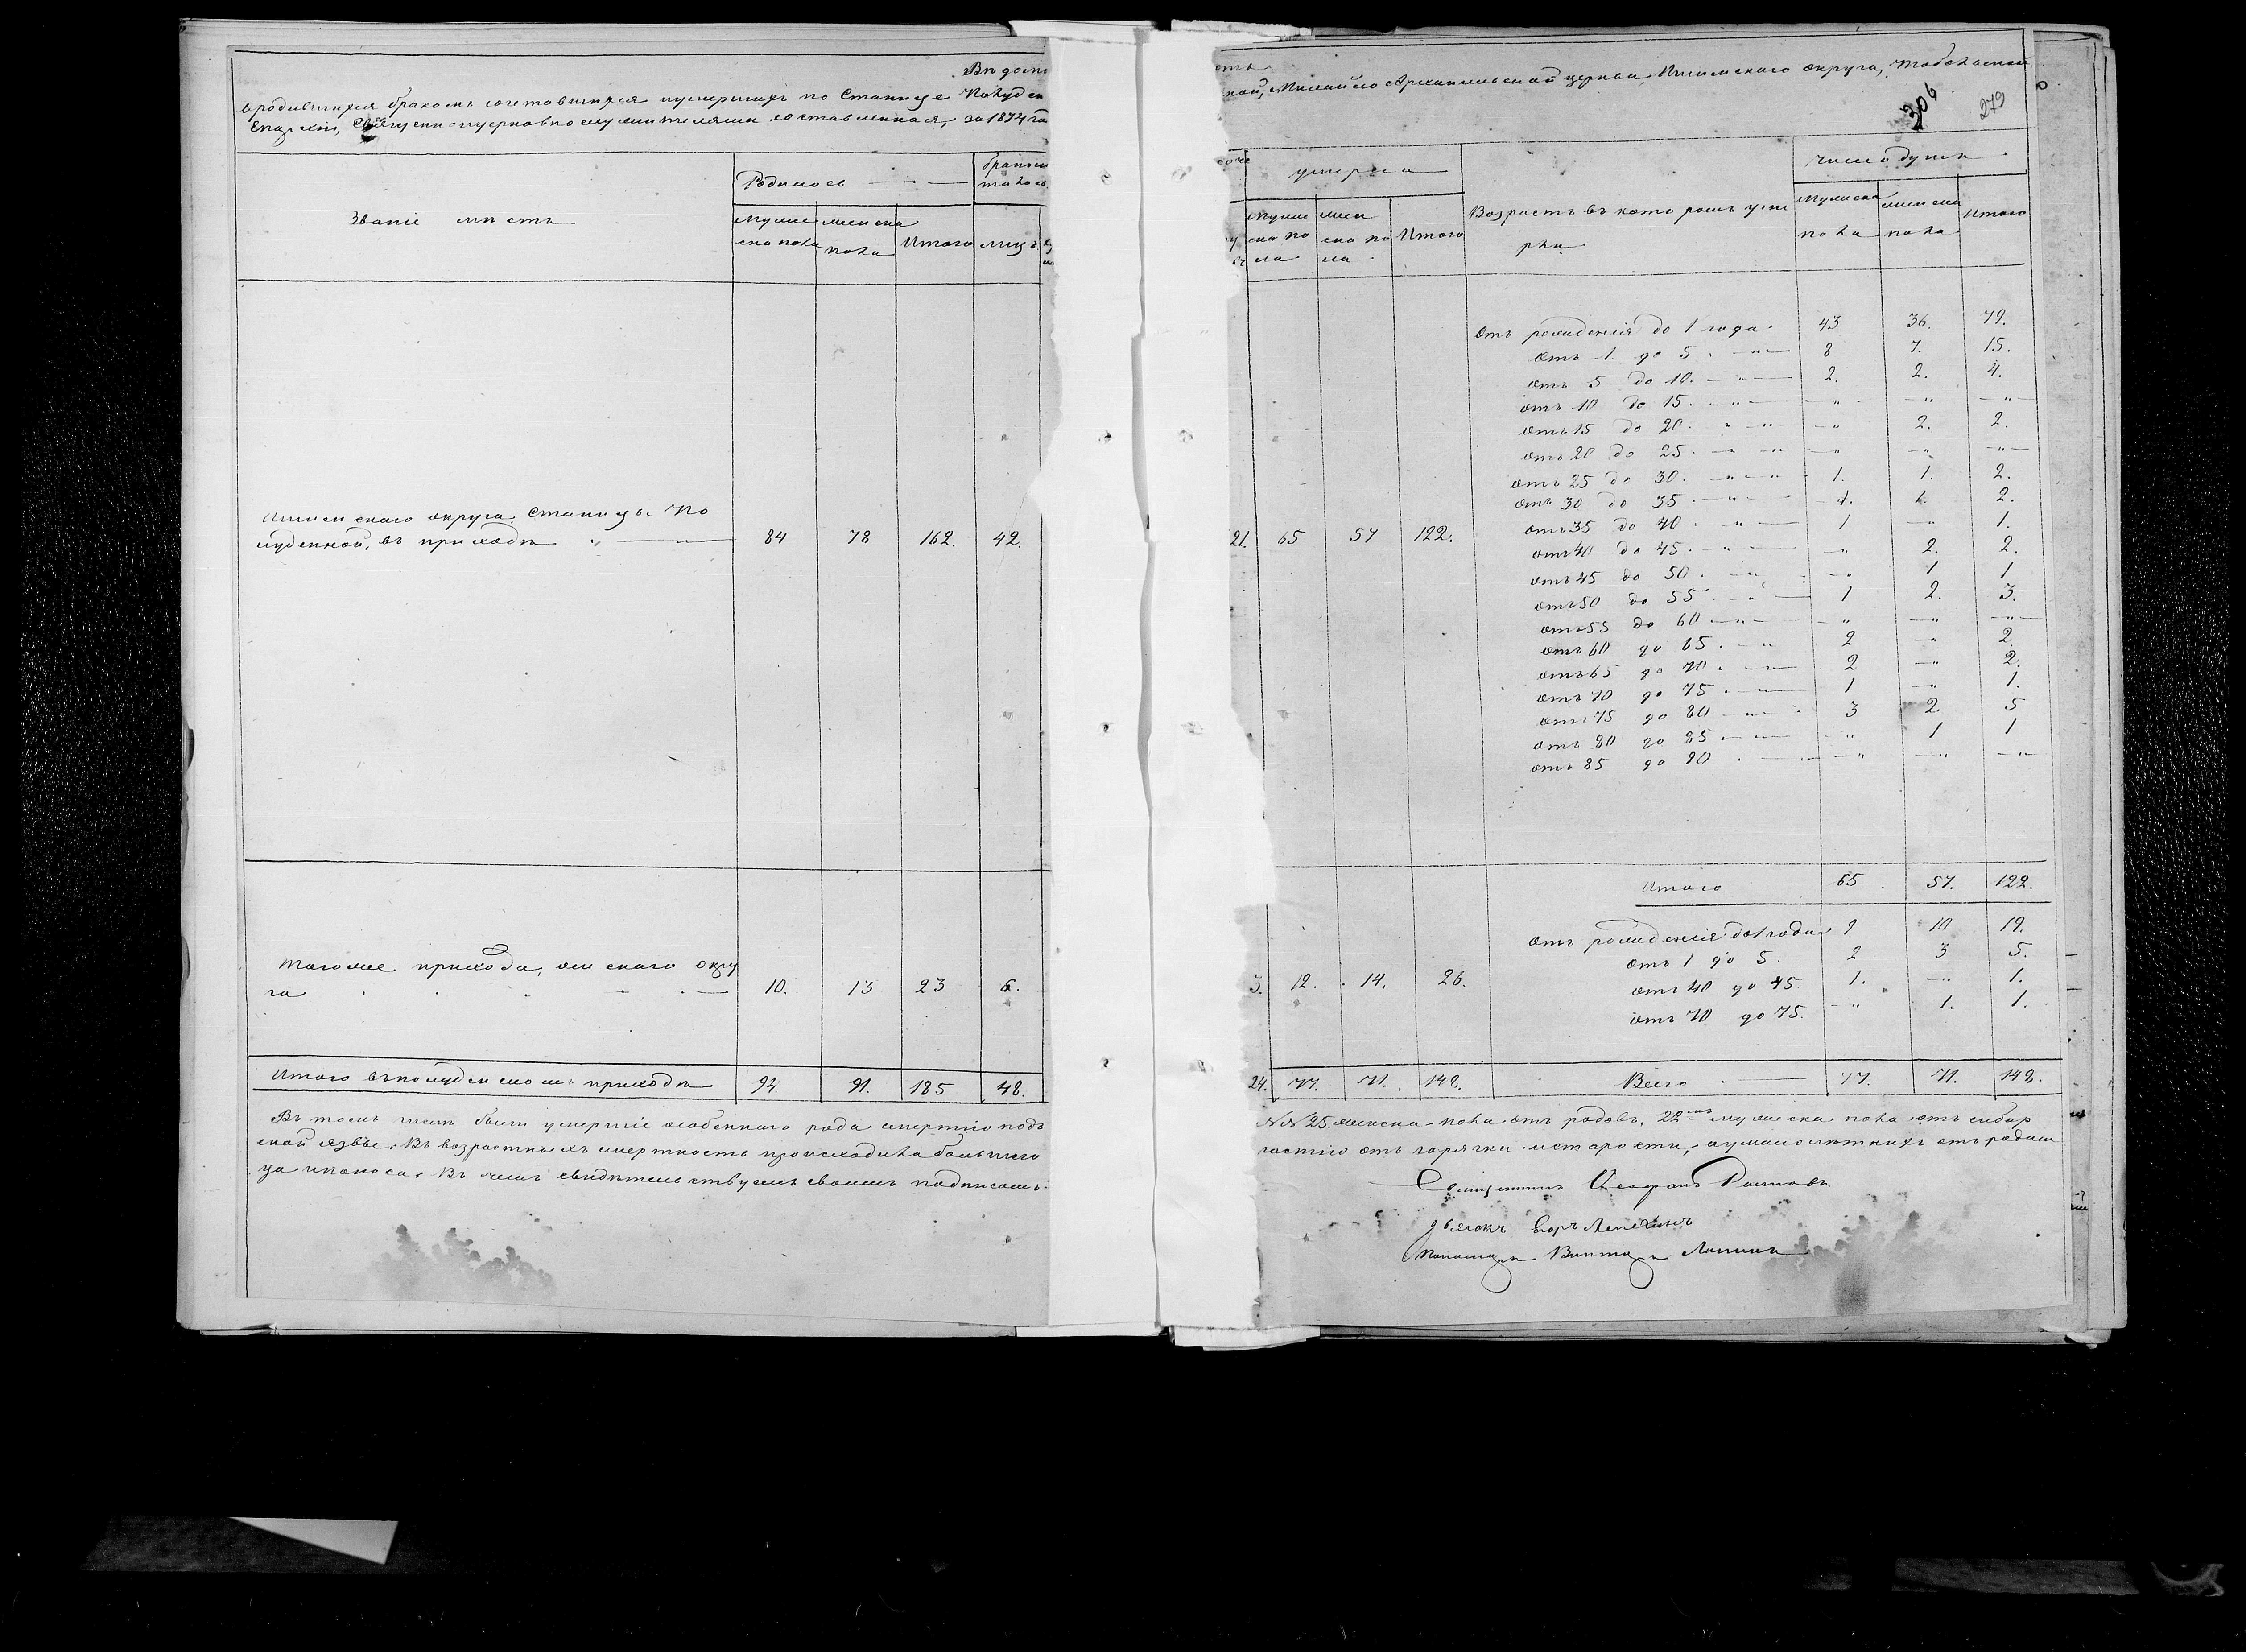 Вѣдом
ость
о родившихся бракомъ сочетавшихся и умершихъ по Станице Полуден
ной, Михайло Архангельской церкви, Ишимскаго округа, Тобольской
Епархіи, Священноцерковнослужителями составленная, за 1874 го
306
279
Званіе мѣстъ
Родилось
Мужес
ска пола
женска
пола
Итого
браком
лицъ
умерло
Муже
ска по
ла
жен
ска по
ла
Итого
Возрастъ въ которомъ уме
рли
Число душъ
Мужеска
пола
женска
пола
Итого
Ишимскаго округа Станицы По
луденной, въ приходѣ " 84 78 162. 42.
21. 65 57 122.
Отъ рожденія до 1 года. 43 36. 79.
отъ 1. до 5. " 8 7. 15.
отъ 5 до 10. " 2. 2. 4.
отъ 10 до 15. " " " "
отъ 15 до 20. " " 2. 2.
отъ 20 до 25. " " " "
отъ 25 до 30. " 1. 1. 2.
отъ 30 до 35 " 1. 1. 2.
отъ 35 до 40. " 1 " 1.
отъ 40 до 45. " " 2. 2.
отъ 45 до 50. " " 1 1
отъ 50 до 55 " 1 2. 3.
отъ 55 до 60 " " " "
отъ 60 до 65. " 2 " 2.
отъ 65 до 70. " 2 " 2.
отъ 70 до 75. " 1 " 1.
отъ 75 до 80 " 3 2. 5
отъ 80 до 85. " " 1 1
отъ 85 до 90. " " " "
Итого 65 57. 122.
Тогоже прихода, омскаго окру
га 10. 13 23 6.
3. 12. 14. 26.
Отъ рожденія до 1 года 9 10 19.
отъ 1 до 5. 2 3 5.
отъ 40 до 45. 1. " 1.
отъ 70 до 75. " 1. 1.
Итого въ полуденскомъ приходѣ 94. 91. 185 48.
24. 77. 71. 148. Всего 77. 71. 148.
Въ томъ числѣ были умершіе особеннаго рода смертію подъ
№№ 25. женска пола отъ родовъ, 22мъ мужеска пола отъ сибир
ской язвы. Въ возрастныхъ смертность происходила большею
частію отъ горячки и старости, а у малолѣтнихъ отъ родим
ца и поноса. Въ чемъ свидѣтельствуемъ своимъ подписомъ.
Священникъ
Дьячокъ Егоръ
Пономарь